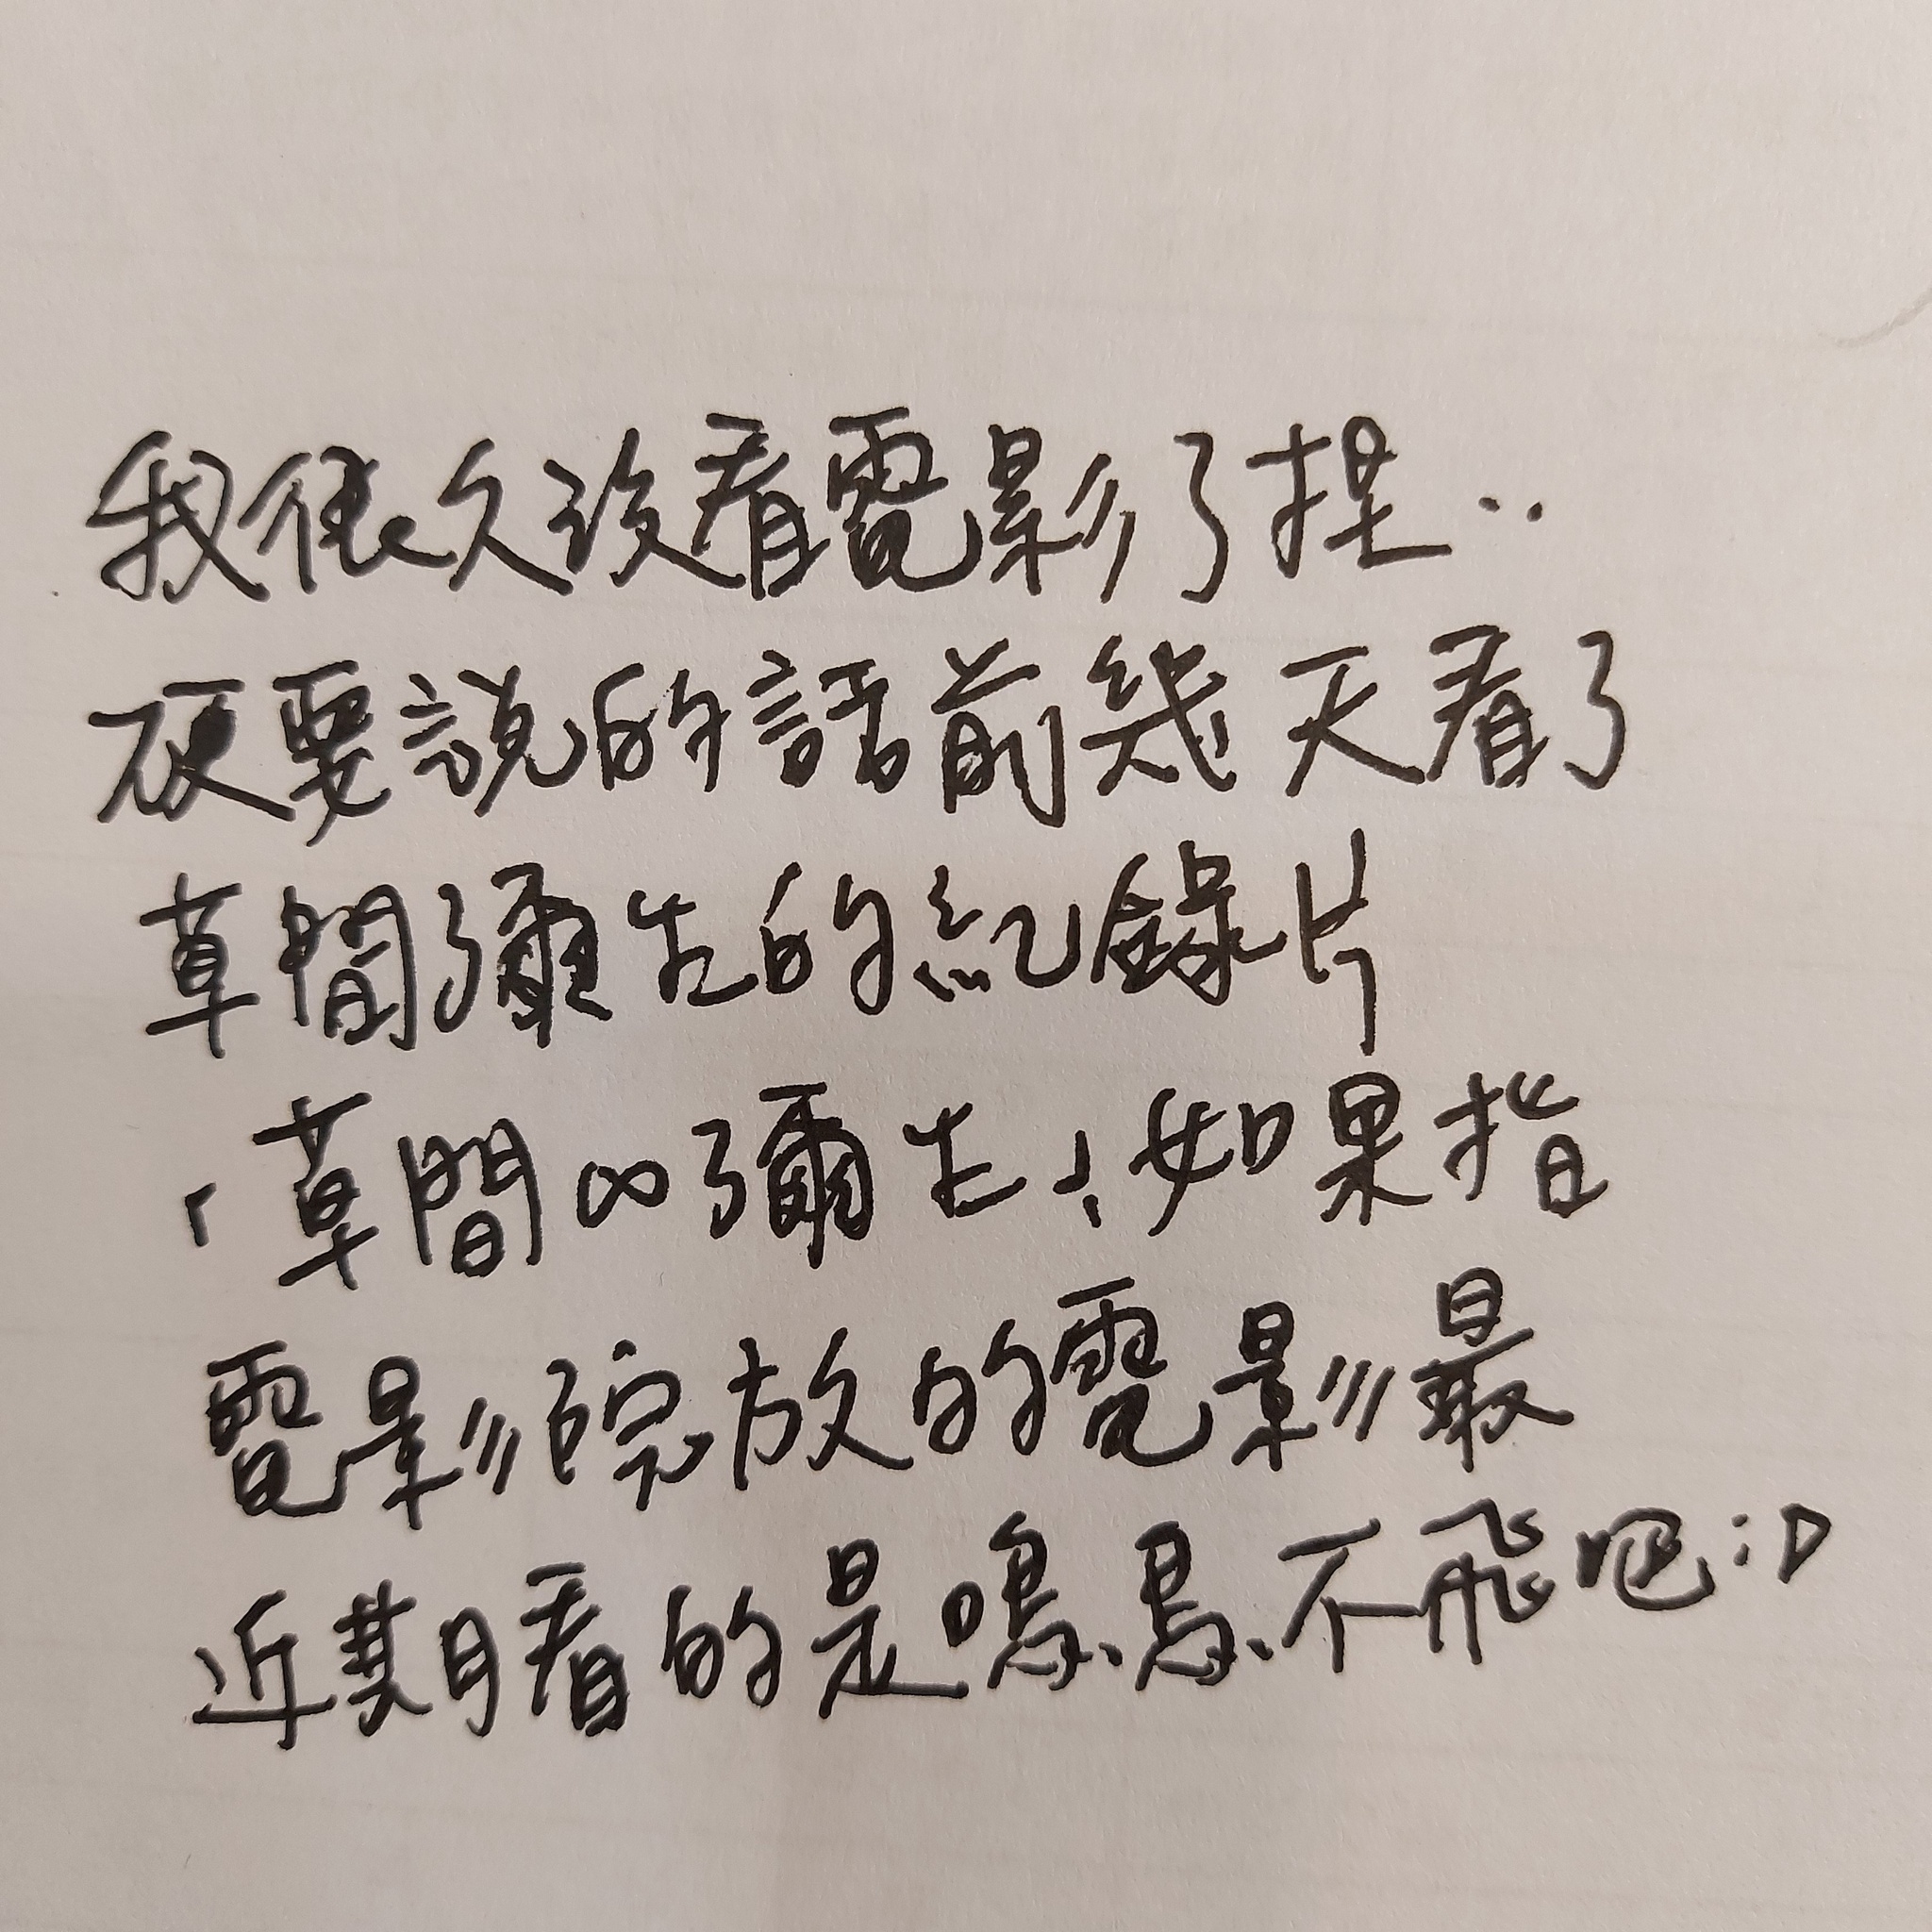 我很久沒看電影了捏..
硬要說的話前幾天看了
草間彌生的紀錄片
「草間∞彌生」如果指
電影院放的電影最
近期看的是鳴鳥不飛吧:D